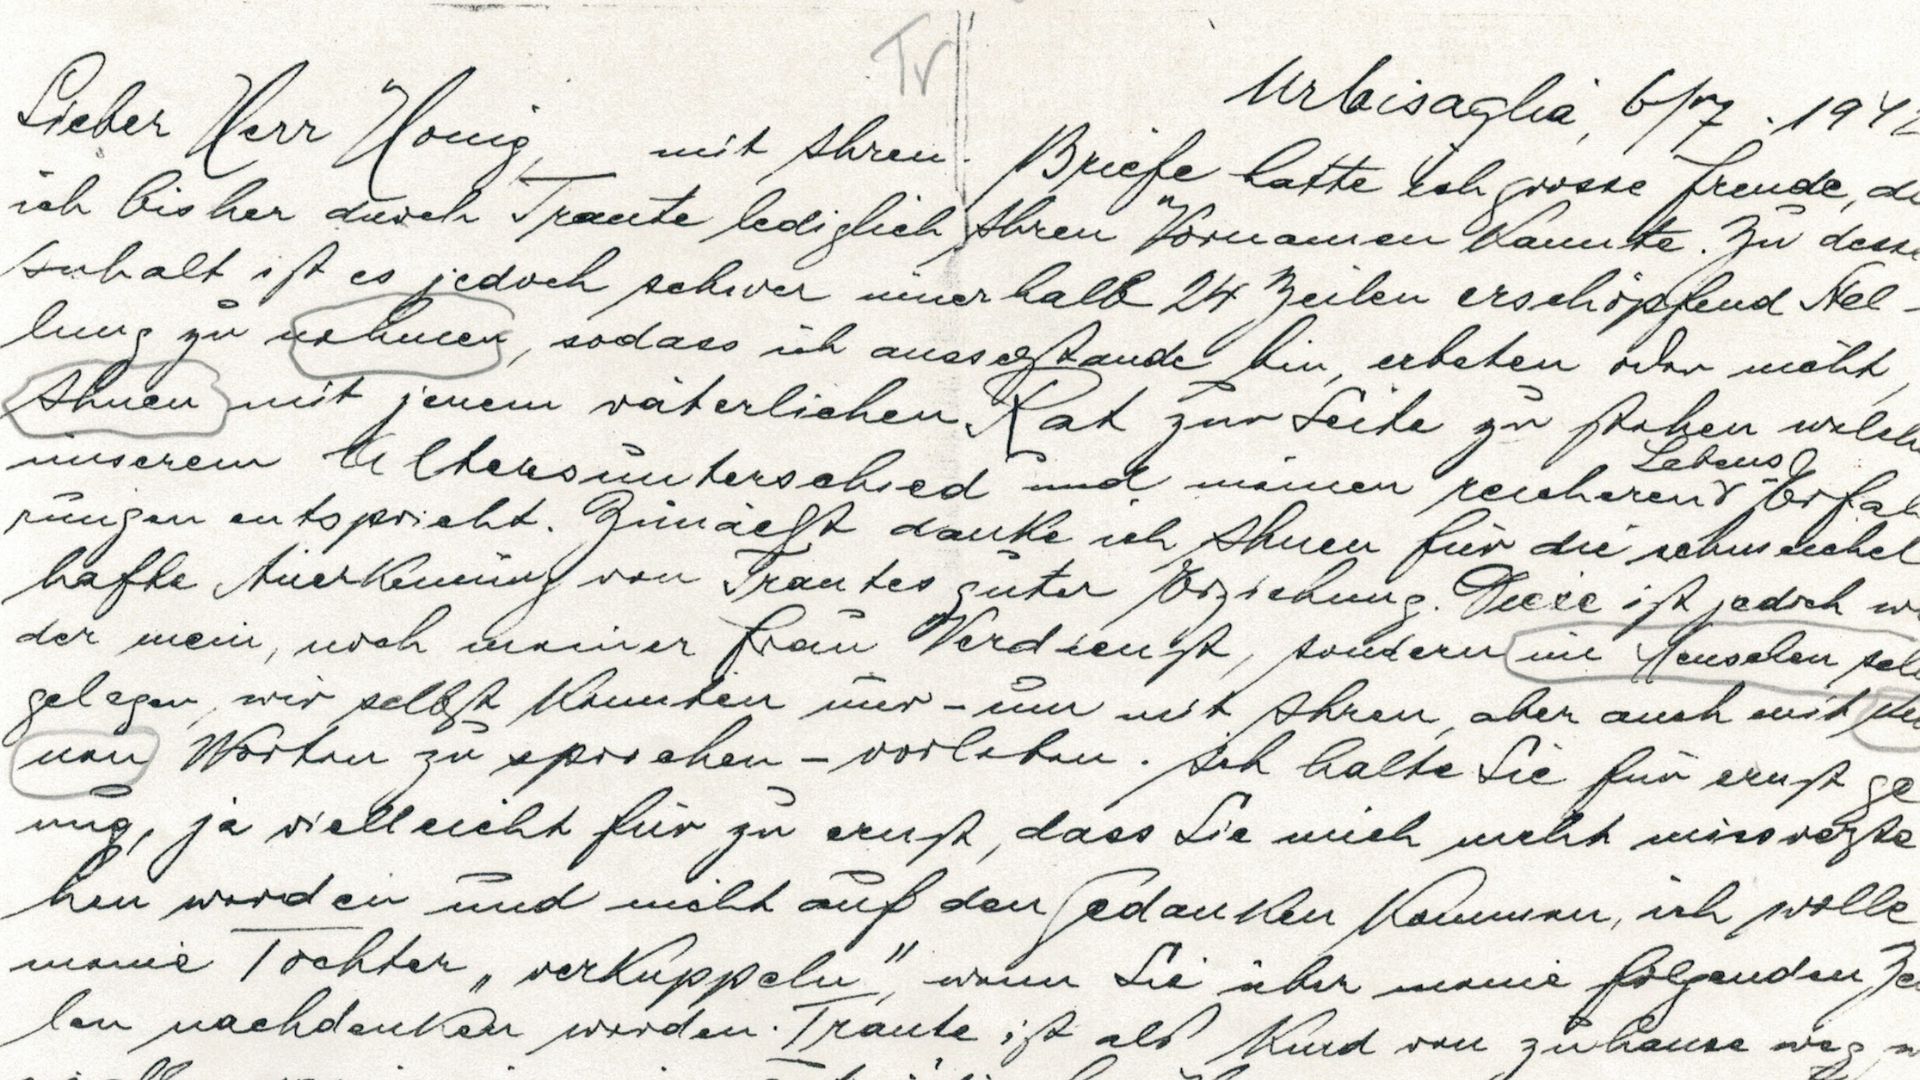 Tr
Urbisaglia, 6/7. 1942
Lieber Herr Honig, mit Ihren Briefe hatte ich grosse Freude, da
ich bisher durch Traute lediglich Ihren Vornamen kannte. Zu desse
Inhalt ist es jedoch schwer innerhalb 24 Zeilen erschöpfend Stel-
lung zu nehmen, sodass ich ausserstande bin, erbeten oder nicht,
Ihnen mit jenem väterlichen Rat zur Seite zu stehen welch
unserem Altersunterschied und meinen reicheren Lebens-Erfah
rungen entspricht. Zunächst danke ich Ihnen für die schmeichel
hafte Anerkennung von Trautes guter Erziehung. Diese ist jedoch we
der mein, noch meiner Frau Verdienst, sondern im Menschen sel
gelegen, wir selbst konnten nur - um mit Ihren, aber auch mit mei
nen Worten zu sprechen - vorleben. Ich halte Sie für ernst ge
nug, ja vielleicht für zu ernst, dass Sie mich nicht missverste
hen werden und nicht auf den Gedanken kommen, ich wolle
meine Tochter „verkuppeln", wenn Sie über meine folgenden Zei
len nachdenken werden. Traute ist als Kind von zuhause weg